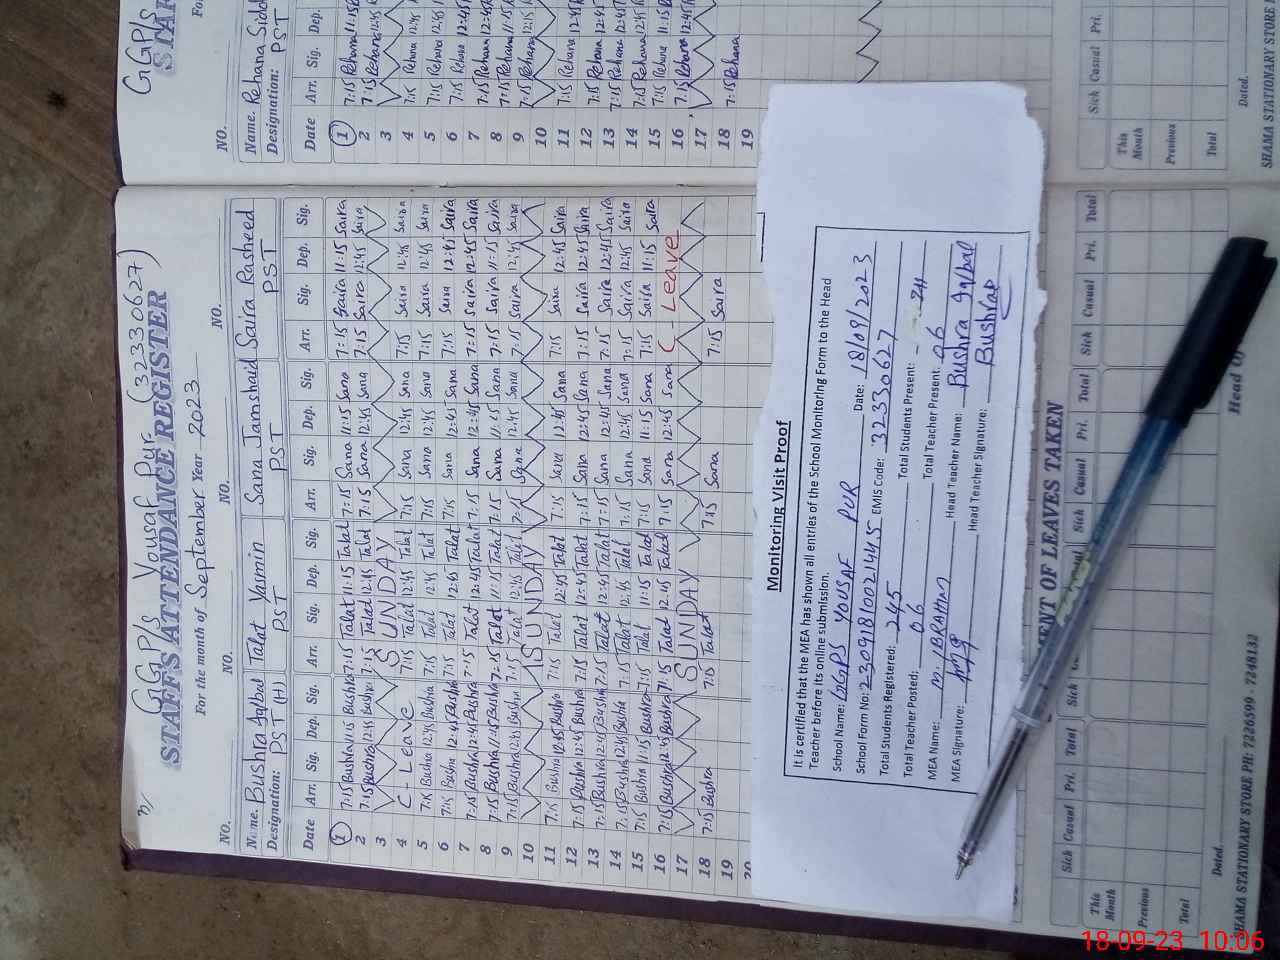 GGP/s Yousaf Pur (32330627)
STAFF'S ATTENDANCE REGISTER
For the month of September Year 2023
NO. NO. NO. NO.
Name. Bushra Iqbal Talat Yasmin Sana Jamshaid Saira Rasheed
Designation: PST (H) PST PST PST
Date Arr. Sig. Dep. Sig. Arr. Sig. Dep. Sig. Arr. Sig. Dep. Sig. Arr. Sig. Dep. Sig.
1 7:15 Bushra 11:15 Bushra 7:15 Talat 11:15 Talat 7:15 Sana 11:15 Sana 7:15 Saira 11:15 Saira
2 7:15 Bushra 12:45 Bushra 7:15 Talat 12:45 Talat 7:15 Sana 12:45 Sana 7:15 Saira 12:45 Saira
3 SUNDAY
4 C - Leave 7:15 Talat 12:45 Talat 7:15 Sana 12:45 Sana 7:15 Saira 12:45 Saira
5 7:15 Bushra 12:45 Bushra 7:15 Talat 12:45 Talat 7:15 Sana 12:45 Sana 7:15 Saira 12:45 Saira
6 7:15 Bushra 12:45 Bushra 7:15 Talat 12:45 Talat 7:15 Sana 12:45 Sana 7:15 Saira 12:45 Saira
7 7:15 Bushra 12:45 Bushra 7:15 Talat 12:45 Talat 7:15 Sana 12:45 Sana 7:15 Saira 12:45 Saira
8 7:15 Bushra 11:15 Bushra 7:15 Talat 11:15 Talat 7:15 Sana 11:15 Sana 7:15 Saira 11:15 Saira
9 7:15 Bushra 12:45 Bushra 7:15 Talat 12:45 Talat 7:15 Sana 12:45 Sana 7:15 Saira 12:45 Saira
10 SUNDAY
11 7:15 Bushra 12:45 Bushra 7:15 Talat 12:45 Talat 7:15 Sana 12:45 Sana 7:15 Saira 12:45 Saira
12 7:15 Bushra 12:45 Bushra 7:15 Talat 12:45 Talat 7:15 Sana 12:45 Sana 7:15 Saira 12:45 Saira
13 7:15 Bushra 12:45 Bushra 7:15 Talat 12:45 Talat 7:15 Sana 12:45 Sana 7:15 Saira 12:45 Saira
14 7:15 Bushra 12:45 Bushra 7:15 Talat 12:45 Talat 7:15 Sana 12:45 Sana 7:15 Saira 12:45 Saira
15 7:15 Bushra 11:15 Bushra 7:15 Talat 11:15 Talat 7:15 Sana 11:15 Sana 7:15 Saira 11:15 Saira
16 7:15 Bushra 12:45 Bushra 7:15 Talat 12:45 Talat 7:15 Sana 12:45 Sana C - Leave
17 SUNDAY
18 7:15 Bushra 7:15 Talat 7:15 Sana 7:15 Saira
19
20
Monitoring Visit Proof
It is certified that the MEA has shown all entries of the School Monitoring Form to the Head
Teacher before its online submission.
School Name: GGPS YOUSAF PUR Date: 18/09/2023
School Form No: 230918100214415 EMIS Code: 32330627
Total Students Registered: 245 Total Students Present:
Total Teacher Posted: 06 Total Teacher Present: 06
MEA Name: M. IBRAHIM Head Teacher Name: Bushra Iqbal
MEA Signature: Head Teacher Signature: Bushra
OF LEAVES TAKEN
Sick Casual Pri. Total Sick Casual Pri. Total Sick Casual Pri. Total
This Month
Previous
Total
Dated. Head Of
SHAMA STATIONARY STORE PH: 7226599 - 7248132
GGP/s
STAF
For
NO.
Name. Rehana
Designation: PST
Date Arr. Sig. Dep.
1 7:15 Rehana 11:15
2 7:15 Rehana 12:45
3
4 7:15 Rehana 12:45
5 7:15 Rehana 12:45
6 7:15 Rehana 12:45
7 7:15 Rehana 12:45
8 7:15 Rehana 11:15
9 7:15 Rehana 12:15
10
11 7:15 Rehana 12:45
12 7:15 Rehana 12:45
13 7:15 Rehana 12:45
14 7:15 Rehana 12:45
15 7:15 Rehana 11:15
16 7:15 Rehana 12:45
17
18 7:15 Rehana
19
Sick Casual Pri.
This Month
Previous
Total
Dated.
SHAMA STATIONARY STORE
18-09-23 10:06